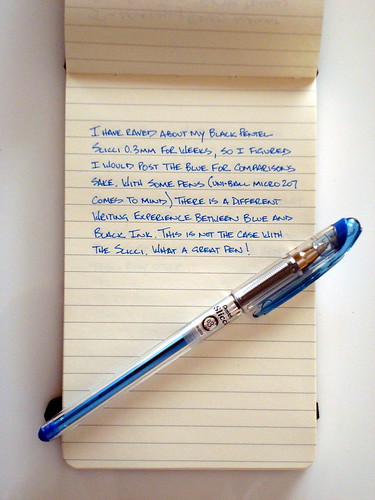 I HAVE RAVED ABOUT MY BLACK PENTEL
SLICCI 0.3MM FOR WEEKS, SO I FIGURED
I WOULD POST THE BLUE FOR COMPARISONS
SAKE. WITH SOME PENS (UNI-BALL MICRO 207
COMES TO MIND) THERE IS A DIFFERENT
WRITING EXPERIENCE BETWEEN BLUE AND
BLACK INK. THIS IS NOT THE CASE WITH
THE SLICCI. WHAT A GREAT PEN!
Pentel
Slicci